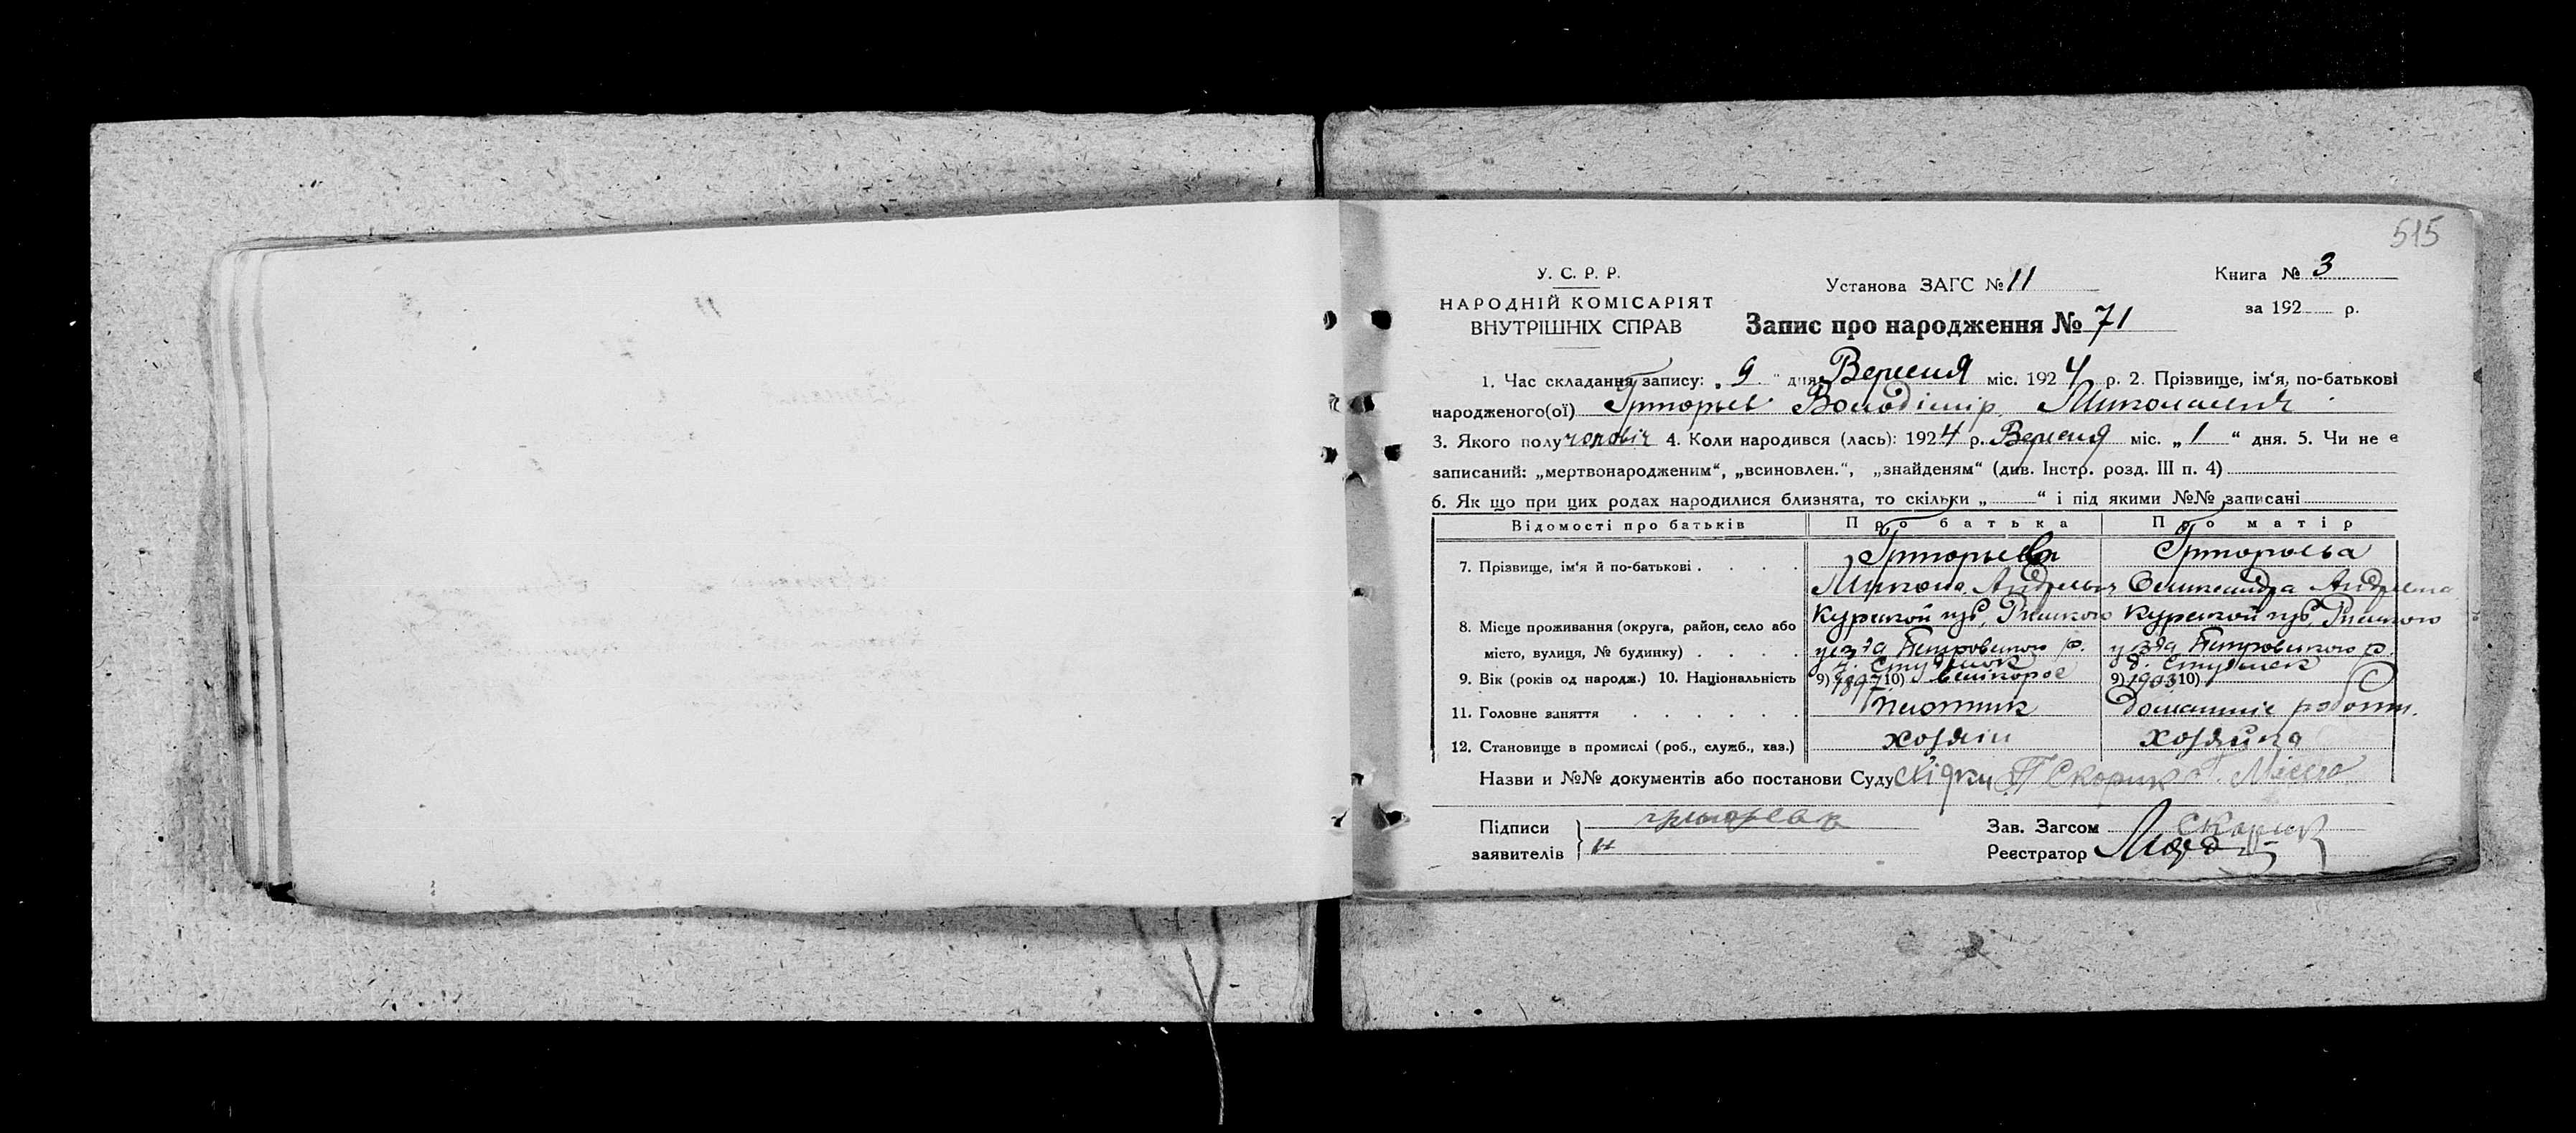 515
У. С. Р. Р.
НАРОДНІЙ КОМІСАРІЯТ
ВНУТРІШНІХ СПРАВ
Установа ЗАГС № 11
Запис про народження № 71
Книга № 3
за 192 р.
1. Час складання запису: „ 9 " дня Вересня міс. 1924 р. 2. Прізвище, ім'я, по-батькові
народженого(ої) Григорьев Володімір Миколаевич
3. Якого полу чоловіч 4. Коли народився (лась): 1924 р. Вересня міс. „ 1 " дня. 5. Чи не е
записаний: „мертвонародженим", „всиновлен.", „знайденям" (див. Інстр. розд. III п. 4)
6. Як що при цих родах народилися близнята, то скільки „ " і під якими №№ записані
Відомості про батьків Про батька Про матір
7. Прізвище, ім'я й по-батькові Григорьев Григорьева
Микола Андреевич Олександра Андреевна
8. Місце проживання (округа, район, село або Курской губ, Курской губ,
місто, вулиця, № будинку) уезда Петровского р. уезда Петровского р.
д. Студенок д. Студенок
9. Вік (років од народж.) 10. Національність 9) 1897 10) 9) 1903 10)
11. Головне заняття Плотник домашние работи.
12. Становище в промислі (роб., служб., хаз.) хозяін хозяйка
Назви и №№ документів або постанови Суду Скорик
Підписи
заявителів
григорьев
"
Зав. Загсом Скорик
Реєстратор